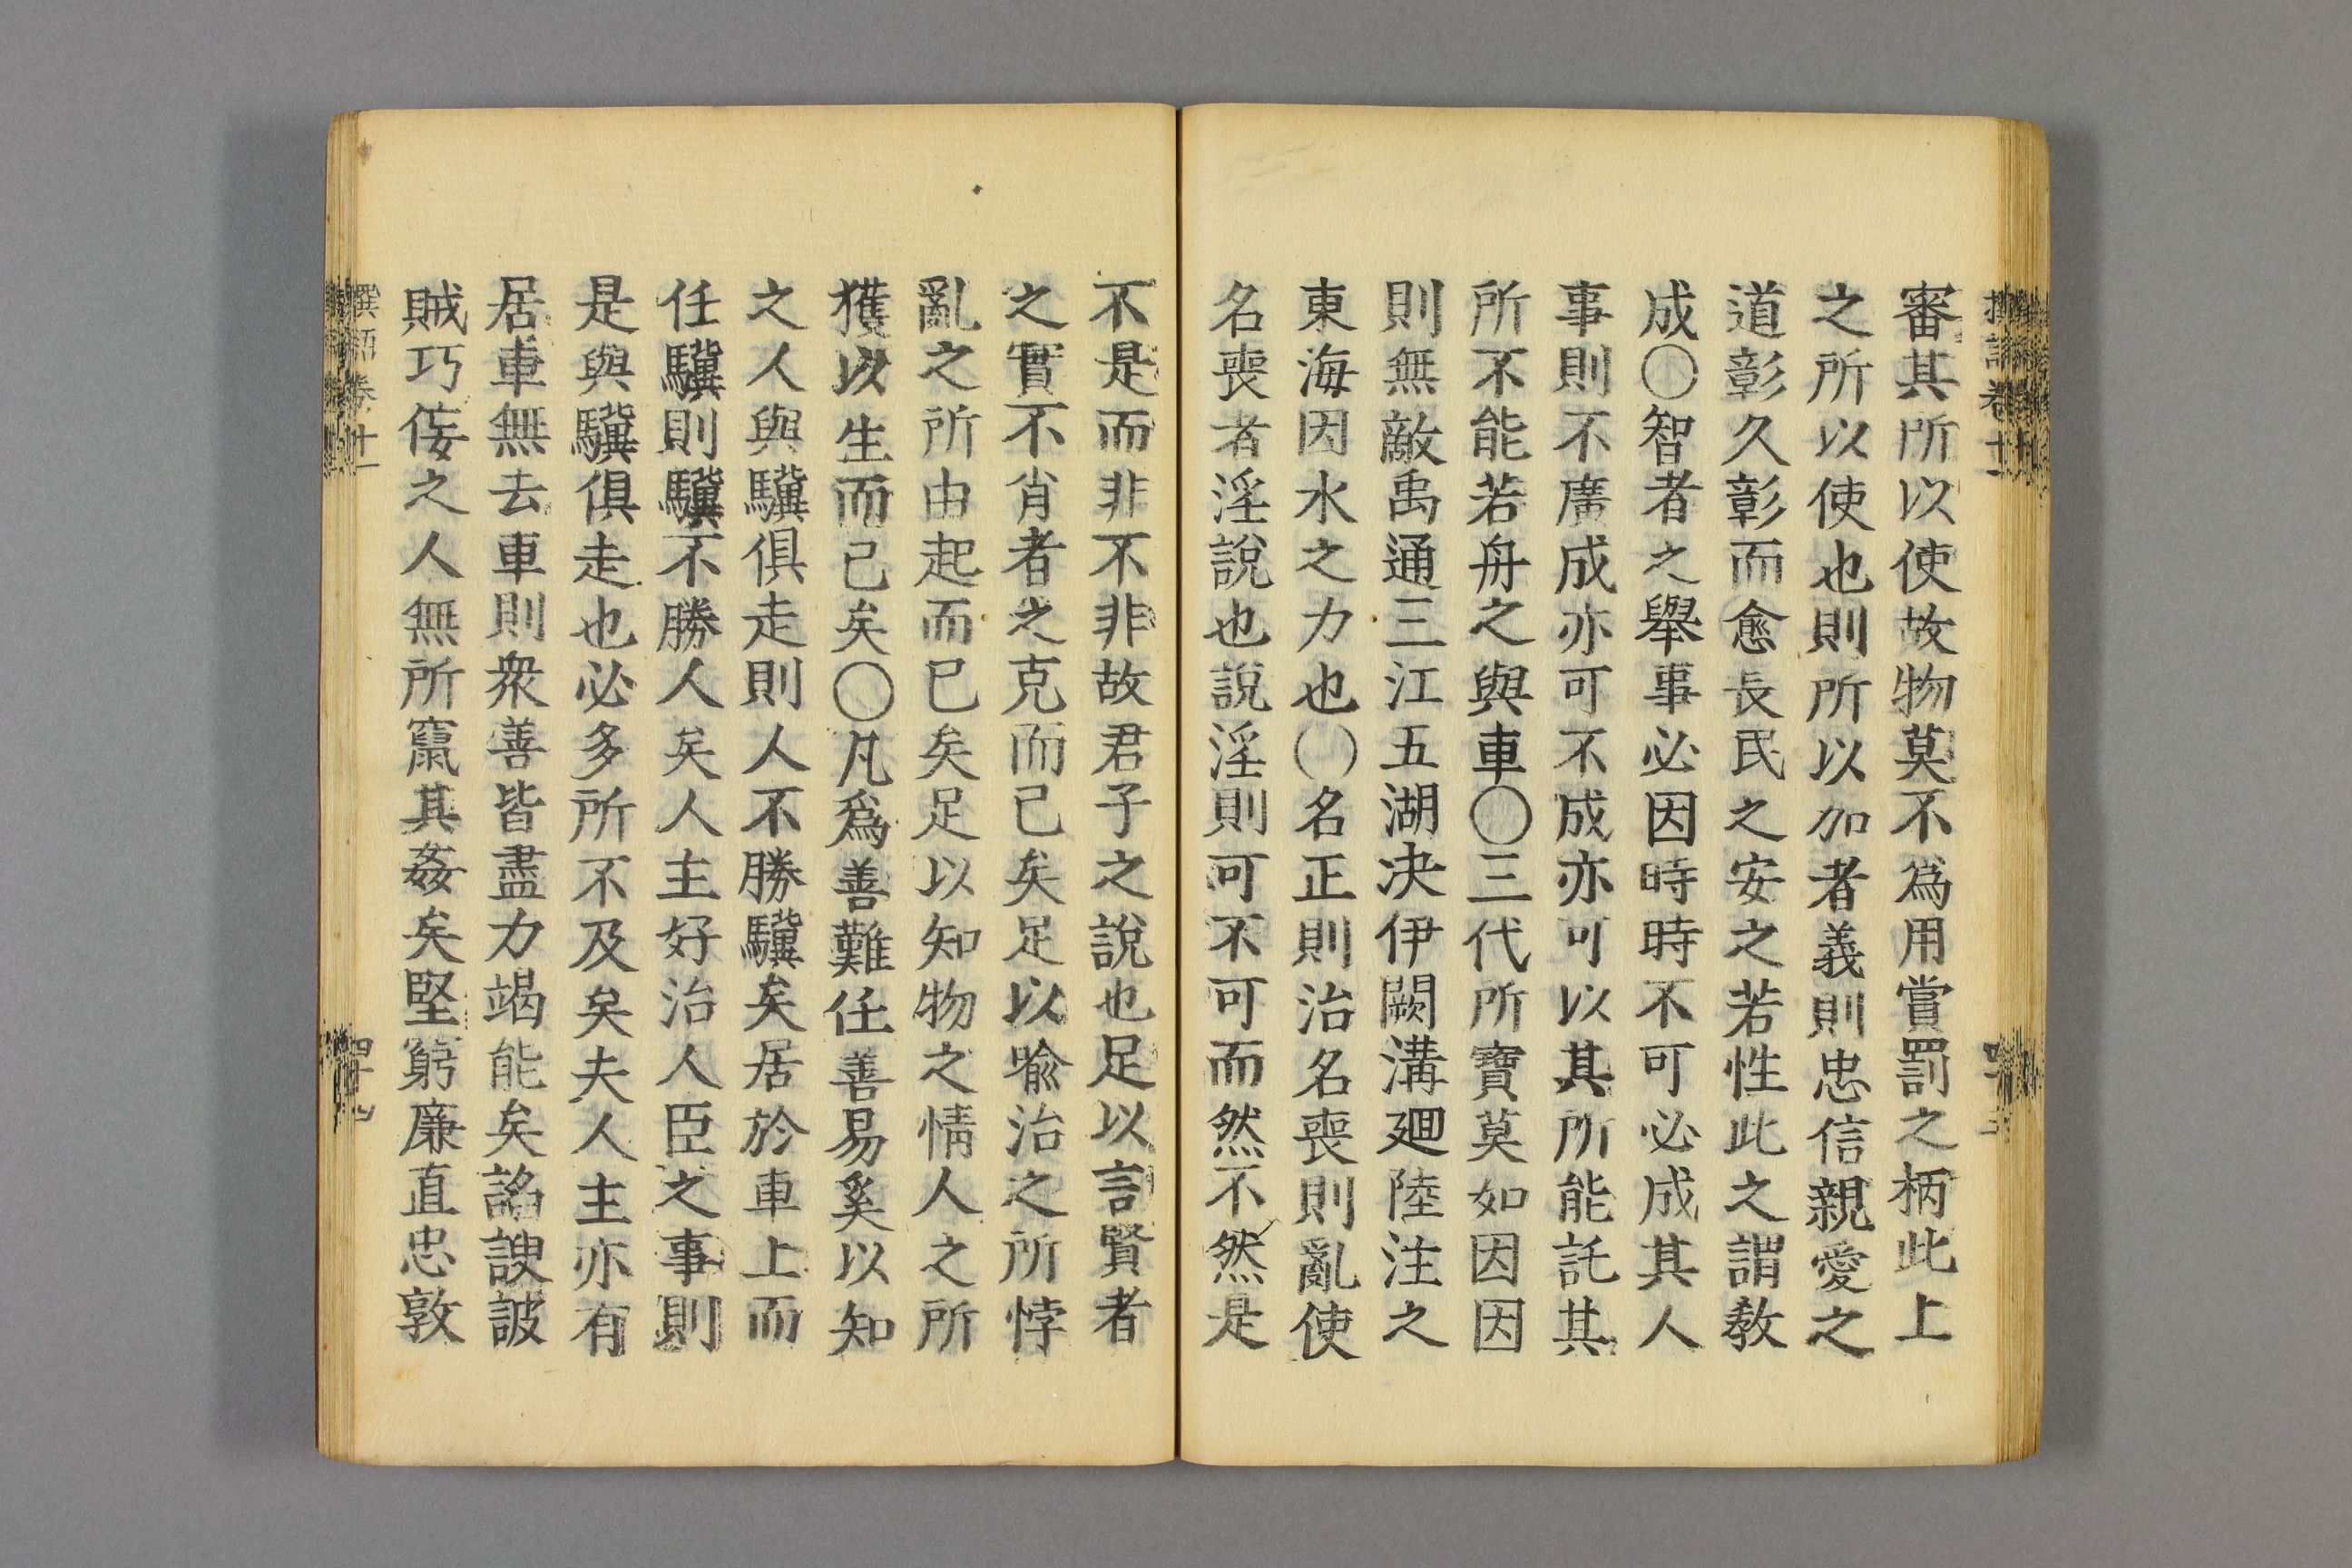 審其所以使故物莫不爲用嘗罰之柄此上
之所以使也則所以加者義則忠信親愛之
道彰久彰而愈長民之安之若性此之謂教
成〇智者之舉事必因時時不可必成其人
事則不廣成亦可不成亦可以其所能託其
所不能若舟之與車〇三代所寶莫如因因
則無敵禹通三江五湖决伊闕溝廻陸注之
東海因水之力也〇名正則治名喪則亂使
名喪者淫說也說淫則可不可而然不然是
不是而非不非故君子之說也足以言賢者
之實不肖者之克而已矣足以喩治之所悖
亂之所由起而已矣足以知物之情人之所
獲以生而已矣〇凡爲善難任善易奚以知
之人與驥俱走則人不勝驥矣居於車上而
任驥則驥不勝人矣人主好治人臣之事則
是與驥俱走也必多所不及矣夫人主亦有
居車無去車則衆善皆盡力竭能矣諂諛詖
賊巧侫之人無所竄其姦矣堅窮廉直忠敦
卷十一